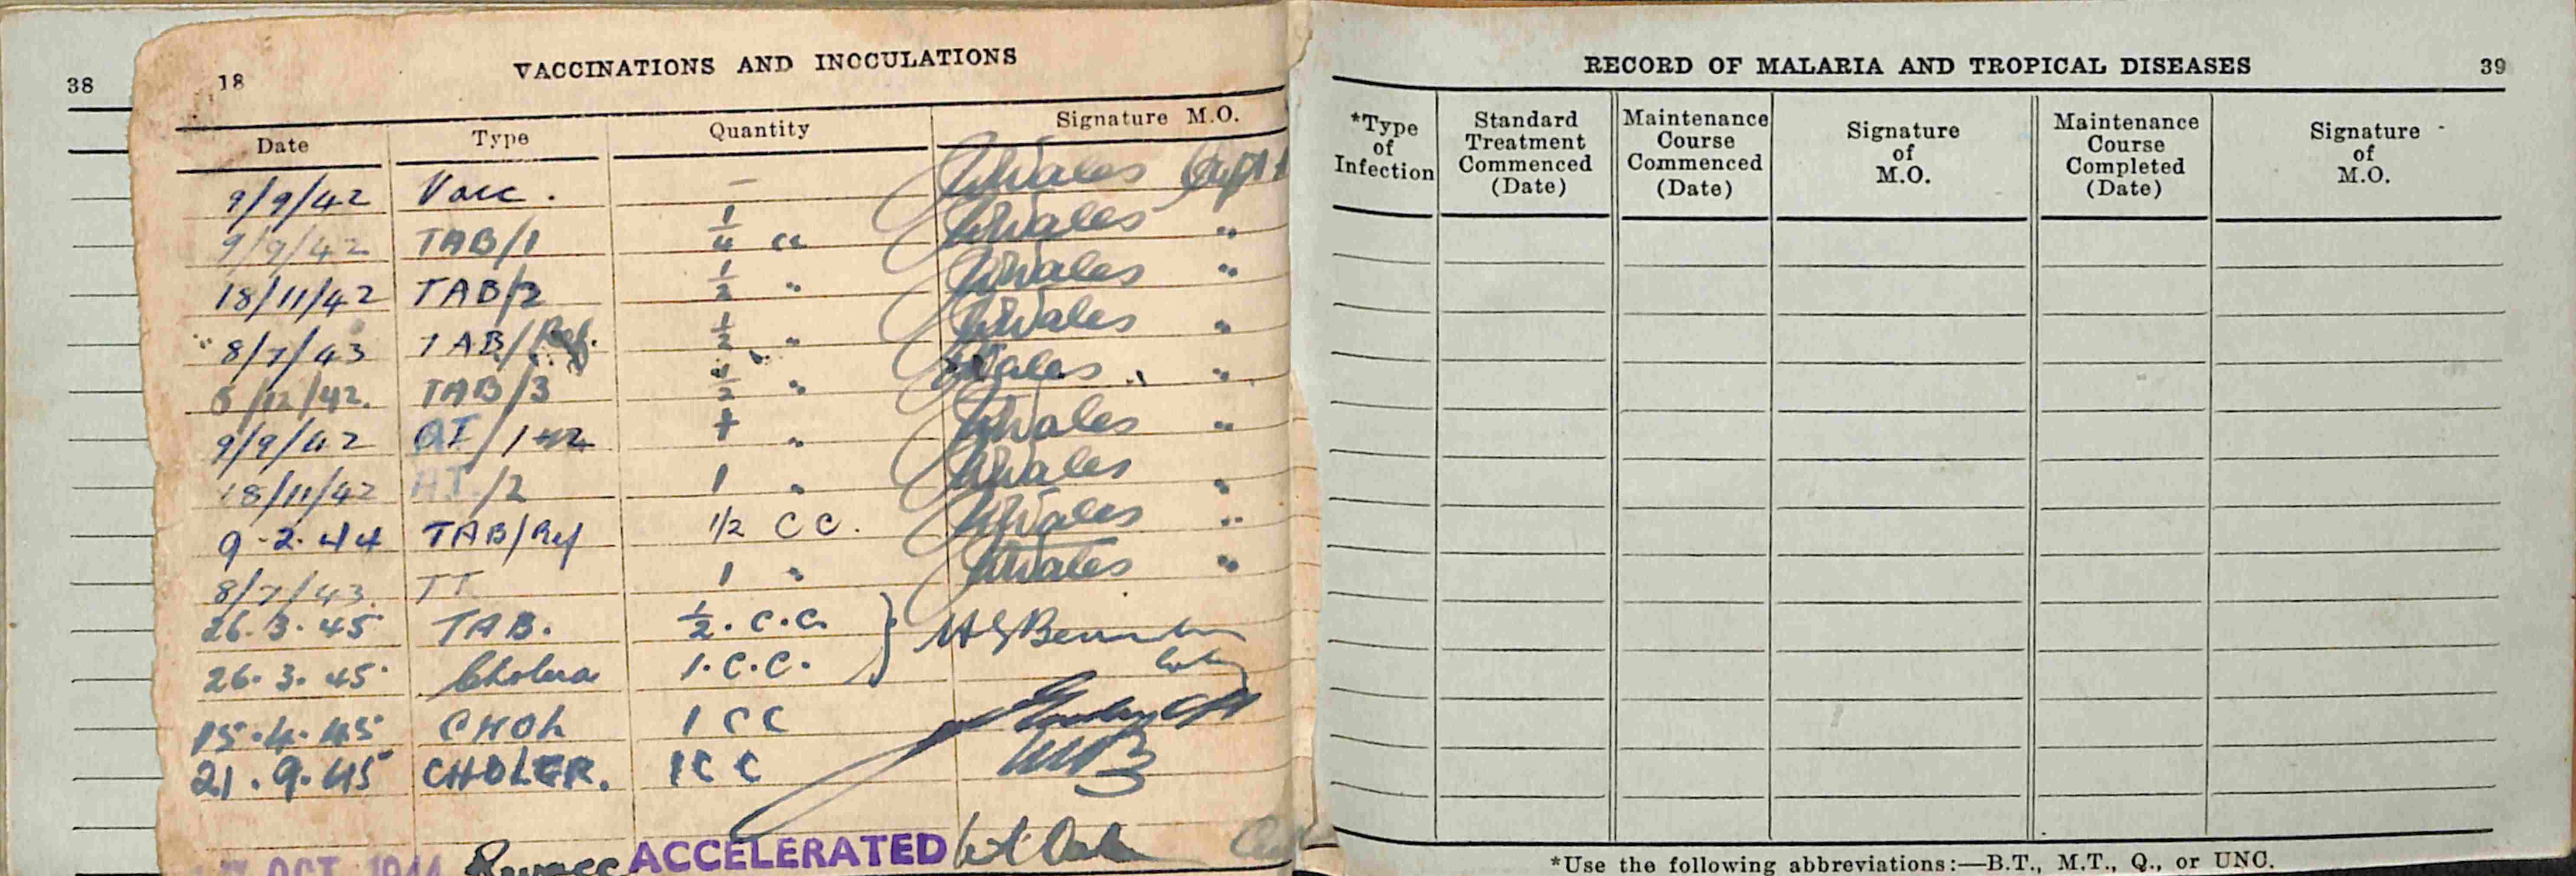 38
18 VACCINATIONS AND INOCULATIONS
Date Type Quantity Signature M.O.
9/9/42 Vacc. — Wales Capt
9/9/42 TAB/1 1/4 cc Wales "
18/11/42 TAB/2 1/2 " Wales "
8/7/43 TAB/Ref. 1/2 " Wales "
8/12/42. TAB/3 1/2 " Wales "
9/9/42 AT/1 " Wales "
18/11/42 AT/2 1 " Wales "
9-2-44 TAB/Ref 1/2 CC. Wales "
8/7/43. TT 1 " Wales "
26.3.45 TAB. 1/2.C.C.
26.3.45 Cholera 1.C.C.
15.4.45 CHOL 1 CC
21.9.45 CHOLER. 1CC
OCT 1944 Revacc ACCELERATED
RECORD OF MALARIA AND TROPICAL DISEASES 39
*Type of Infection
Standard Treatment Commenced (Date)
Maintenance Course Commenced (Date)
Signature of M.O.
Maintenance Course Completed (Date)
Signature of M.O.
*Use the following abbreviations:—B.T., M.T., Q., or UNC.